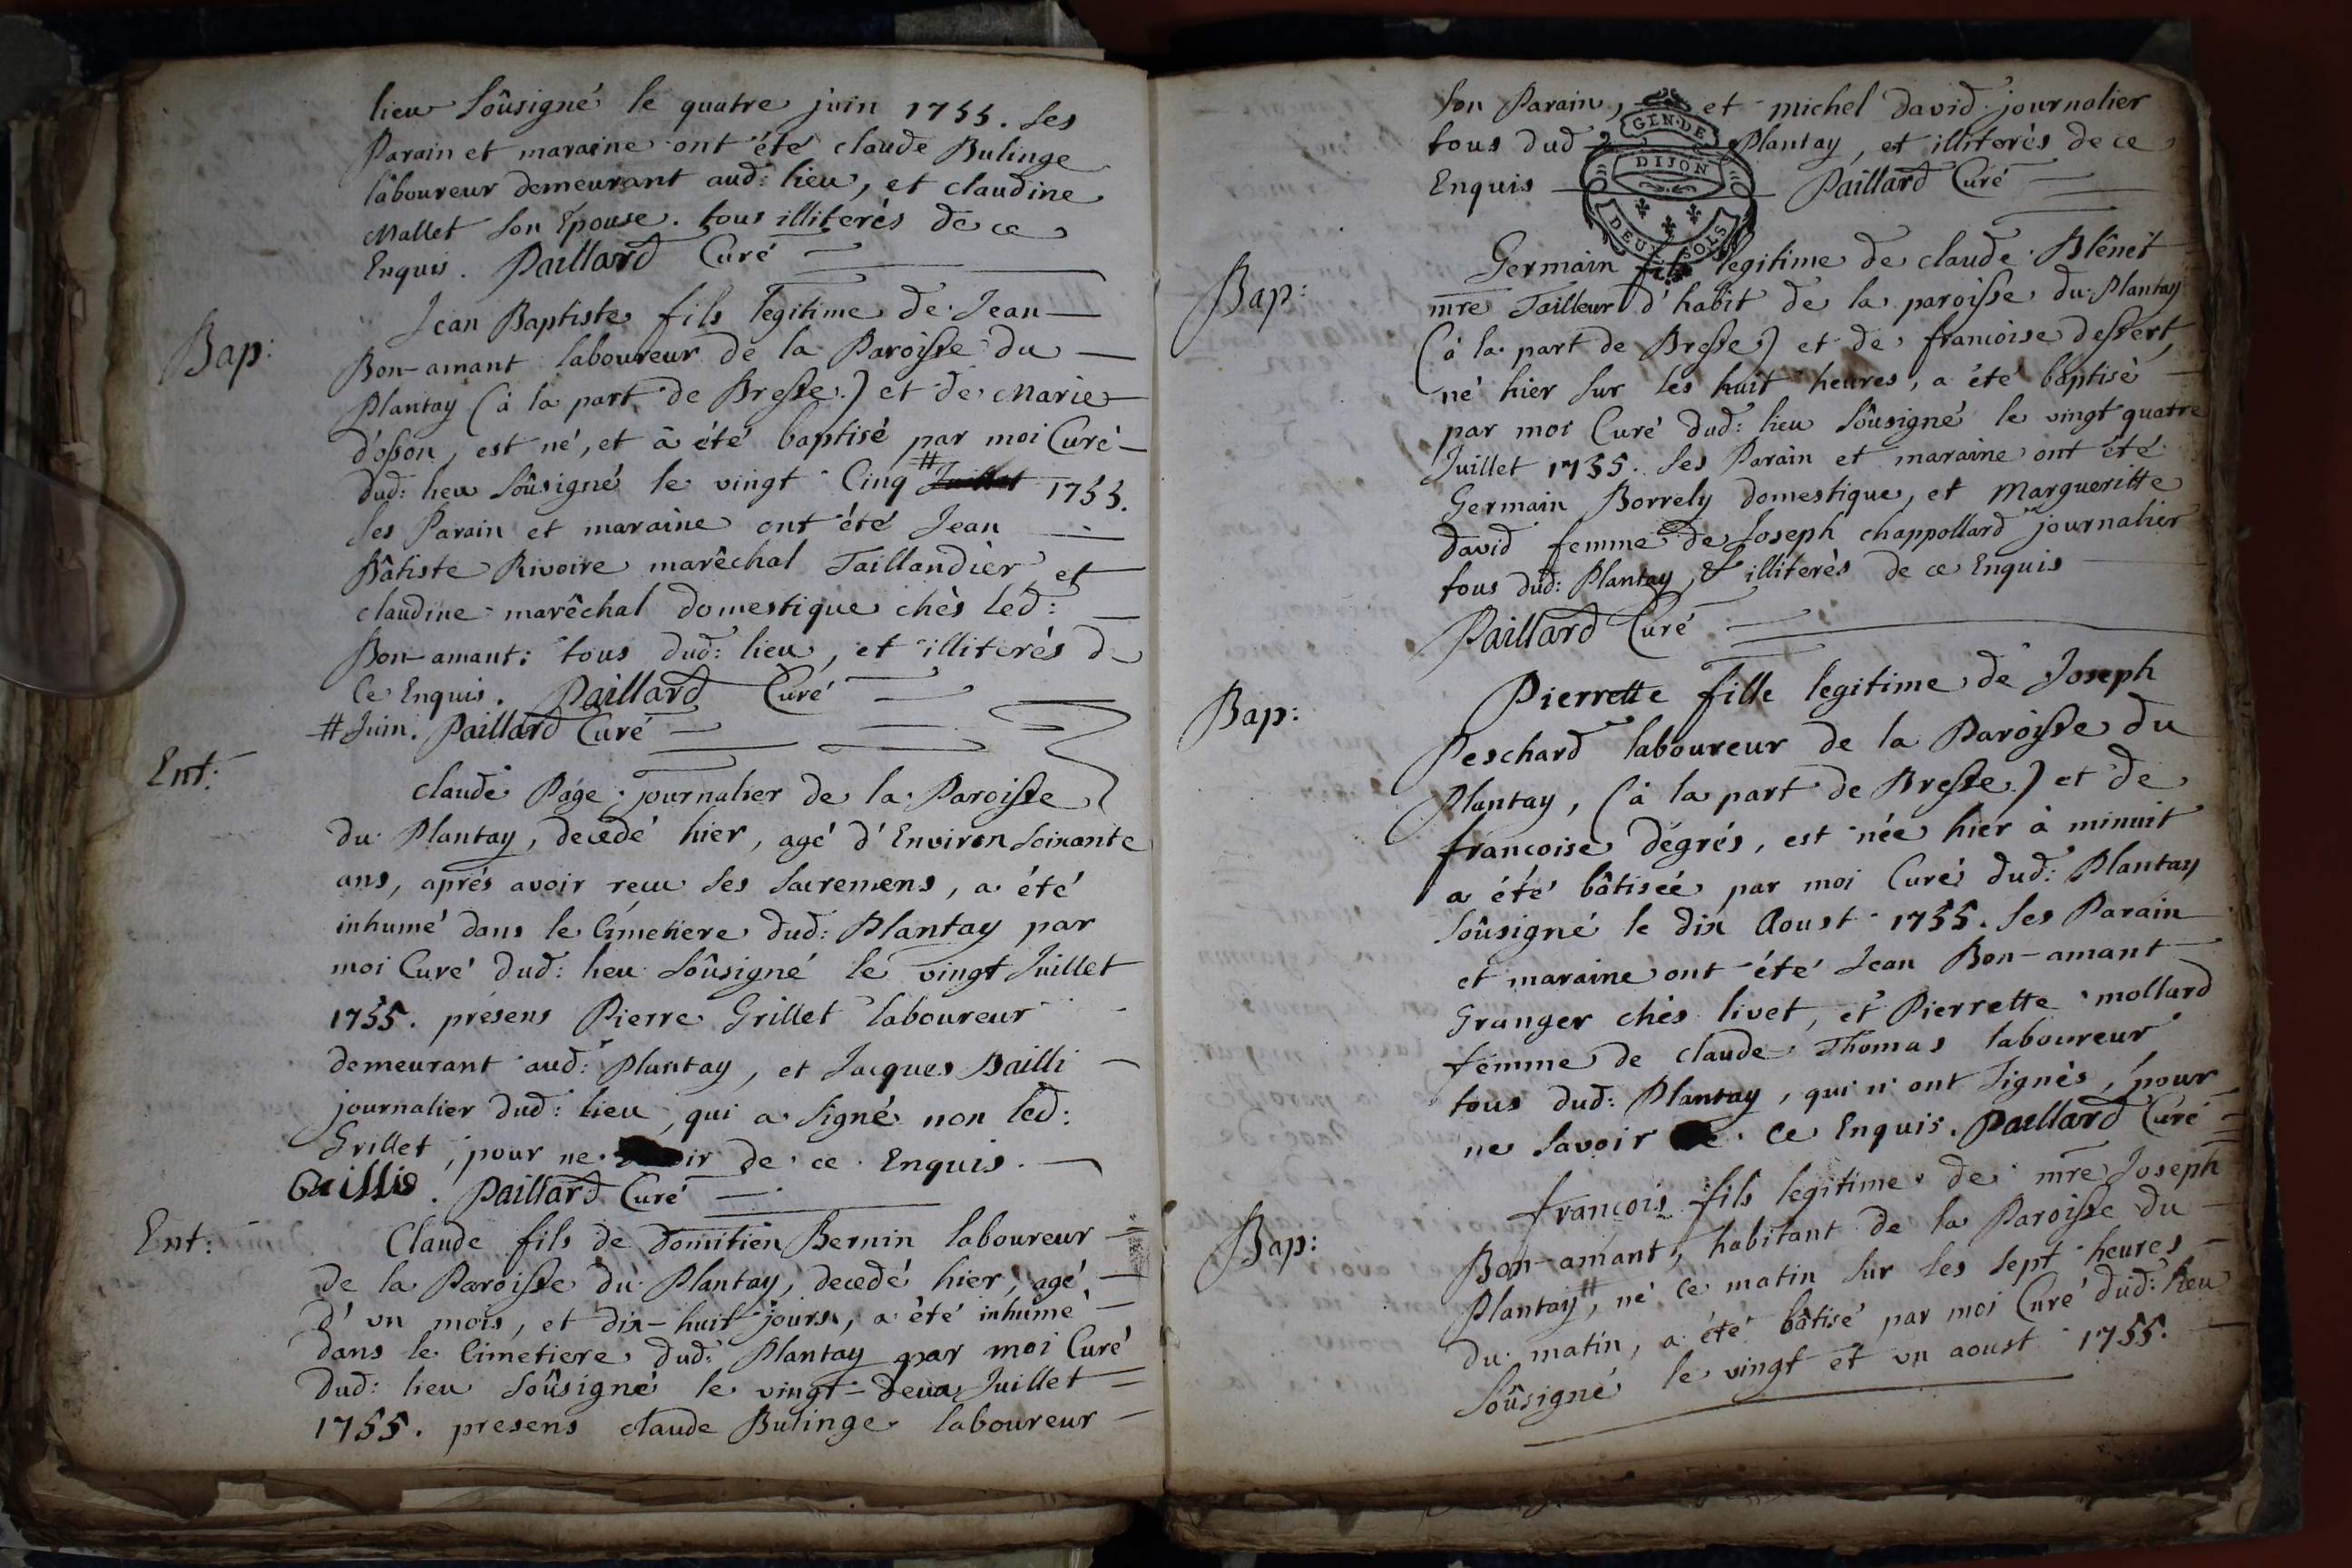 lieu soûsigné le quatre juin 1755. Ses
Parain et maraine ont été claude Bulinge
laboureur demeurant aud: lieu, et claudine
Mallet son Epouse. tous illiterés de ce
Enquis. Paillard Curé
Bap:
Jean Baptiste fils legitime de Jean
Bon-amant laboureur de la Paroisse du
Plantay (à la part de Bresse) et de Marie
d'osson, est né, et a été baptisé par moi Curé
dud: lieu soûsigné le vingt Cinq # Juillet 1755.
Ses Parain et maraine ont été Jean
Bâtiste Rivoire marêchal Taillandier et
claudine marêchal domestique chès led:
Bon-amant: tous dud: lieu, et illiterés de
Ce Enquis. Paillard Curé
# Juin. Paillard Curé
Ent:
claude Page journalier de la Paroisse
du Plantay, decedé hier, agé d'Environ soixante
ans, aprés avoir reçu ses sacremens, a été
inhumé dans le Cimetiere dud: Plantay par
moi Curé dud: lieu soûsigné le vingt Juillet
1755. présens Pierre Grillet laboureur
demeurant aud: Plantay, et Jacques Bailli
journalier dud: lieu, qui a signé non led:
Grillet, pour ne de ce Enquis.
Baillis. Paillard Curé
Ent:
Claude fils de domitien Bernin laboureur
de la Paroisse du Plantay, decedé hier, agé
d'un mois, et dix-huit jours, a été inhumé
dans le Cimetiere dud: Plantay par moi Curé
dud: lieu soûsigné le vingt-deux Juillet
1755. presens claude Bulinge laboureur
son Parain, et michel david journalier
tous dud Plantay, et illiterés de ce
Enquis Paillard Curé
GEN·DE
DIJON
DEUX SOLS
Bap:
Germain fils legitime de claude Blênet
mre Tailleur d'habit de la paroisse du Plantay
(à la part de Bresse) et de francoise dessert,
né hier sur les huit heures, a été baptisé
par moi Curé dud: lieu soûsigné le vingt quatre
Juillet 1755. Ses Parain et maraine ont été
Germain Borrely domestique, et Margueritte
david femme de Joseph chappollard journalier
tous dud: Plantay, & illiterés de ce Enquis
Paillard Curé
Bap:
Pierrette fille legitime de Joseph
Peschard laboureur de la Paroisse du
Plantay, (à la part de Bresse) et de
francoise dégrés, est née hier à minuit
a été bâtisée par moi Curé dud: Plantay
soûsigné le dix Aoust 1755. Ses Parain
et maraine ont été Jean Bon-amant
Granger chés livet, et Pierrette mollard
femme de claude Thomas laboureur
tous dud: Plantay, qui n'ont signés, pour
ne savoir Ce Enquis. Paillard Curé
Bap:
francois fils legitime de mre Joseph
Bon-amant, habitant de la Paroisse du
Plantay #, né ce matin sur les sept heures
du matin, a été bâtisé par moi Curé dud: lieu
soûsigné le vingt et un aoust 1755.